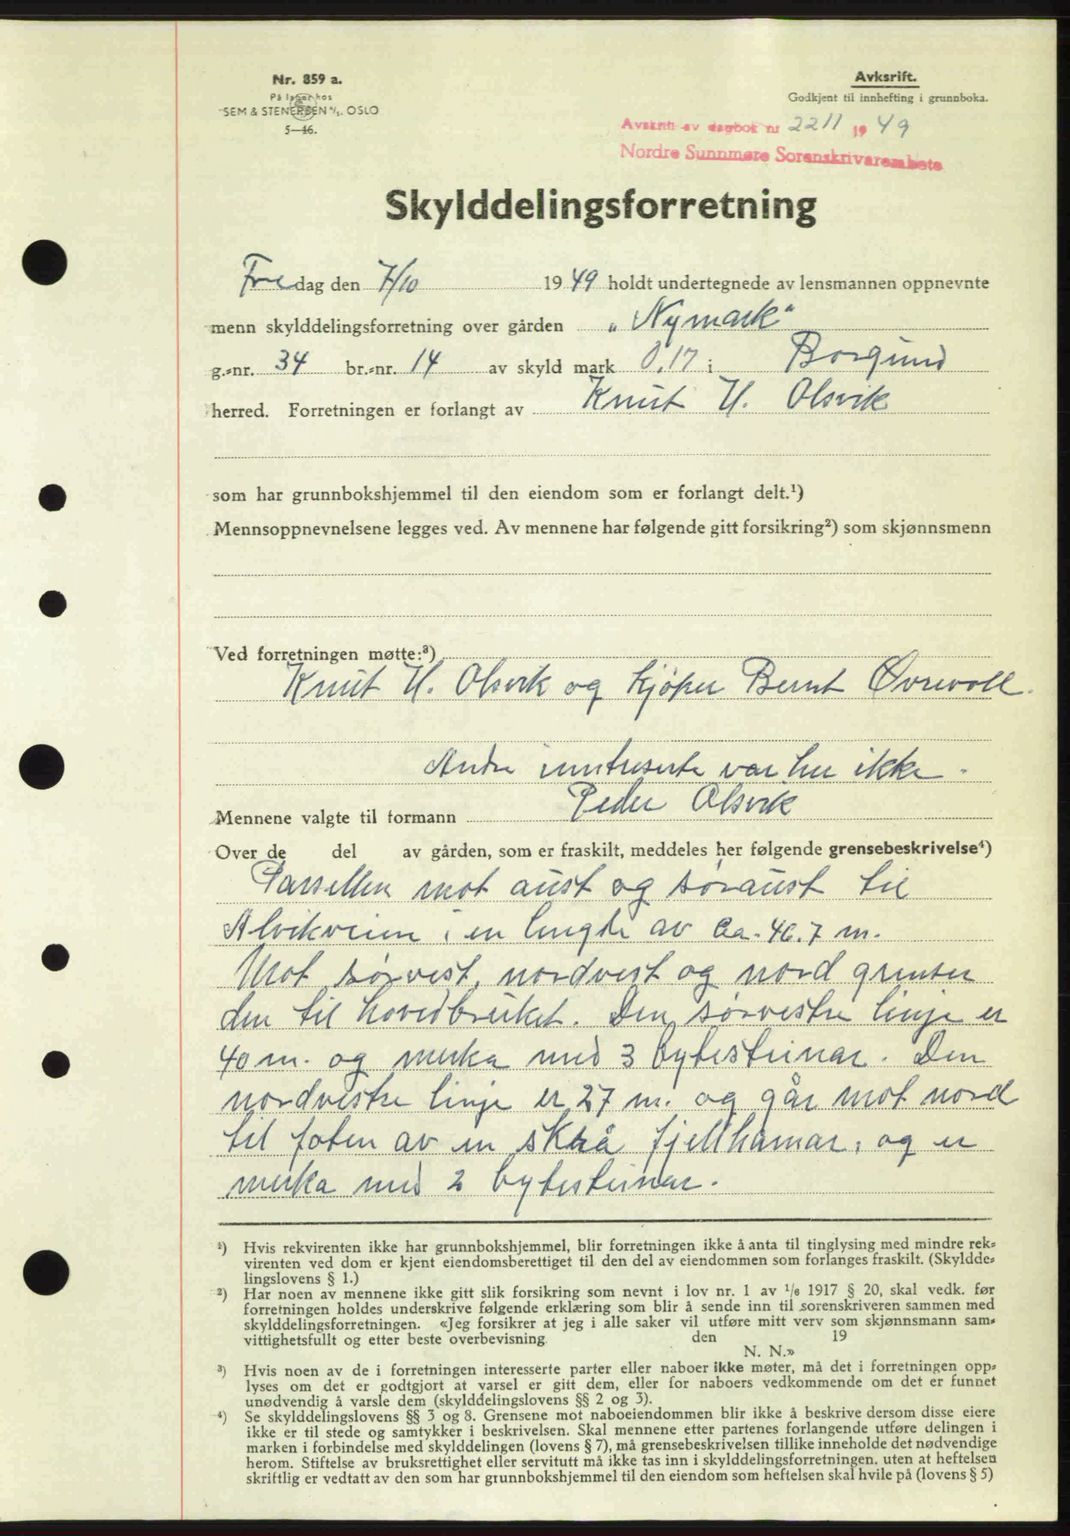 Nr. 859 a.
På lager hos
SEM & STENERSEN A/S. OSLO
5—46.
Avksrift.
Godkjent til innhefting i grunnboka.
Avskrift av dagbok nr 2211 1949
Nordre Sunnmøre Sorenskrivarembete
Skylddelingsforretning
Fredag den 7/10 1949 holdt undertegnede av lensmannen oppnevnte
menn skylddelingsforretning over gården „Nymark“
g.-nr. 34 br.-nr. 14 av skyld mark 0,17 i Borgund
herred. Forretningen er forlangt av Knut H. Olsvik
som har grunnbokshjemmel til den eiendom som er forlangt delt.¹)
Mennsoppnevnelsene legges ved. Av mennene har følgende gitt forsikring²) som skjønnsmenn
Ved forretningen møtte:³)
Knut H. Olsvik og kjøper Bernt Øvrevoll.
Andre inntreserte var her ikke.
Mennene valgte til formann Peder Olsvik
Over de del av gården, som er fraskilt, meddeles her følgende grensebeskrivelse⁴)
Parsellen mot aust og søraust til
Alvikveien i en lengde av ca. 46.7 m.
Mot sørvest, nordvest og nord grenser
den til hovedbruket. Den sørvestre linje er
40 m. og merka med 3 bytesteinar. Den
nordvestre linje er 27 m. og går mot nord
til foten av en skrå fjellhamar, og er
merka med 2 bytesteinar.
¹) Hvis rekvirenten ikke har grunnbokshjemmel, blir forretningen ikke å anta til tinglysing med mindre rek-
virenten ved dom er kjent eiendomsberettiget til den del av eiendommen som forlanges fraskilt. (Skyldde-
lingslovens § 1.)
²) Har noen av mennene ikke gitt slik forsikring som nevnt i lov nr. 1 av 1/6 1917 § 20, skal vedk. før
forretningen holdes underskrive følgende erklæring som blir å sende inn til sorenskriveren sammen med
skylddelingsforretningen. «Jeg forsikrer at jeg i alle saker vil utføre mitt verv som skjønnsmann sam-
vittighetsfullt og etter beste overbevisning den 19
N. N.»
³) Hvis noen av de i forretningen interesserte parter eller naboer ikke møter, må det i forretningen opp-
lyses om det er godtgjort at varsel er gitt dem, eller for naboers vedkommende om det er funnet
unødvendig å varsle dem (skylddelingslovens §§ 2 og 3).
⁴) Se skylddelingslovens §§ 3 og 8. Grensene mot naboeiendommen blir ikke å beskrive dersom disse eiere
ikke er til stede og samtykker i beskrivelsen. Skal mennene etter partenes forlangende utføre delingen i
marken i forbindelse med skylddelingen (lovens § 7), må grensebeskrivelsen tillike inneholde det nødvendige
herom. Stiftelse av bruksrettighet eller servitutt må ikke tas inn i skylddelingsforretningen, uten at heftelsen
skriftlig er vedtatt av den som har grunnbokshjemmel til den eiendom som heftelsen skal hvile på (lovens § 5)